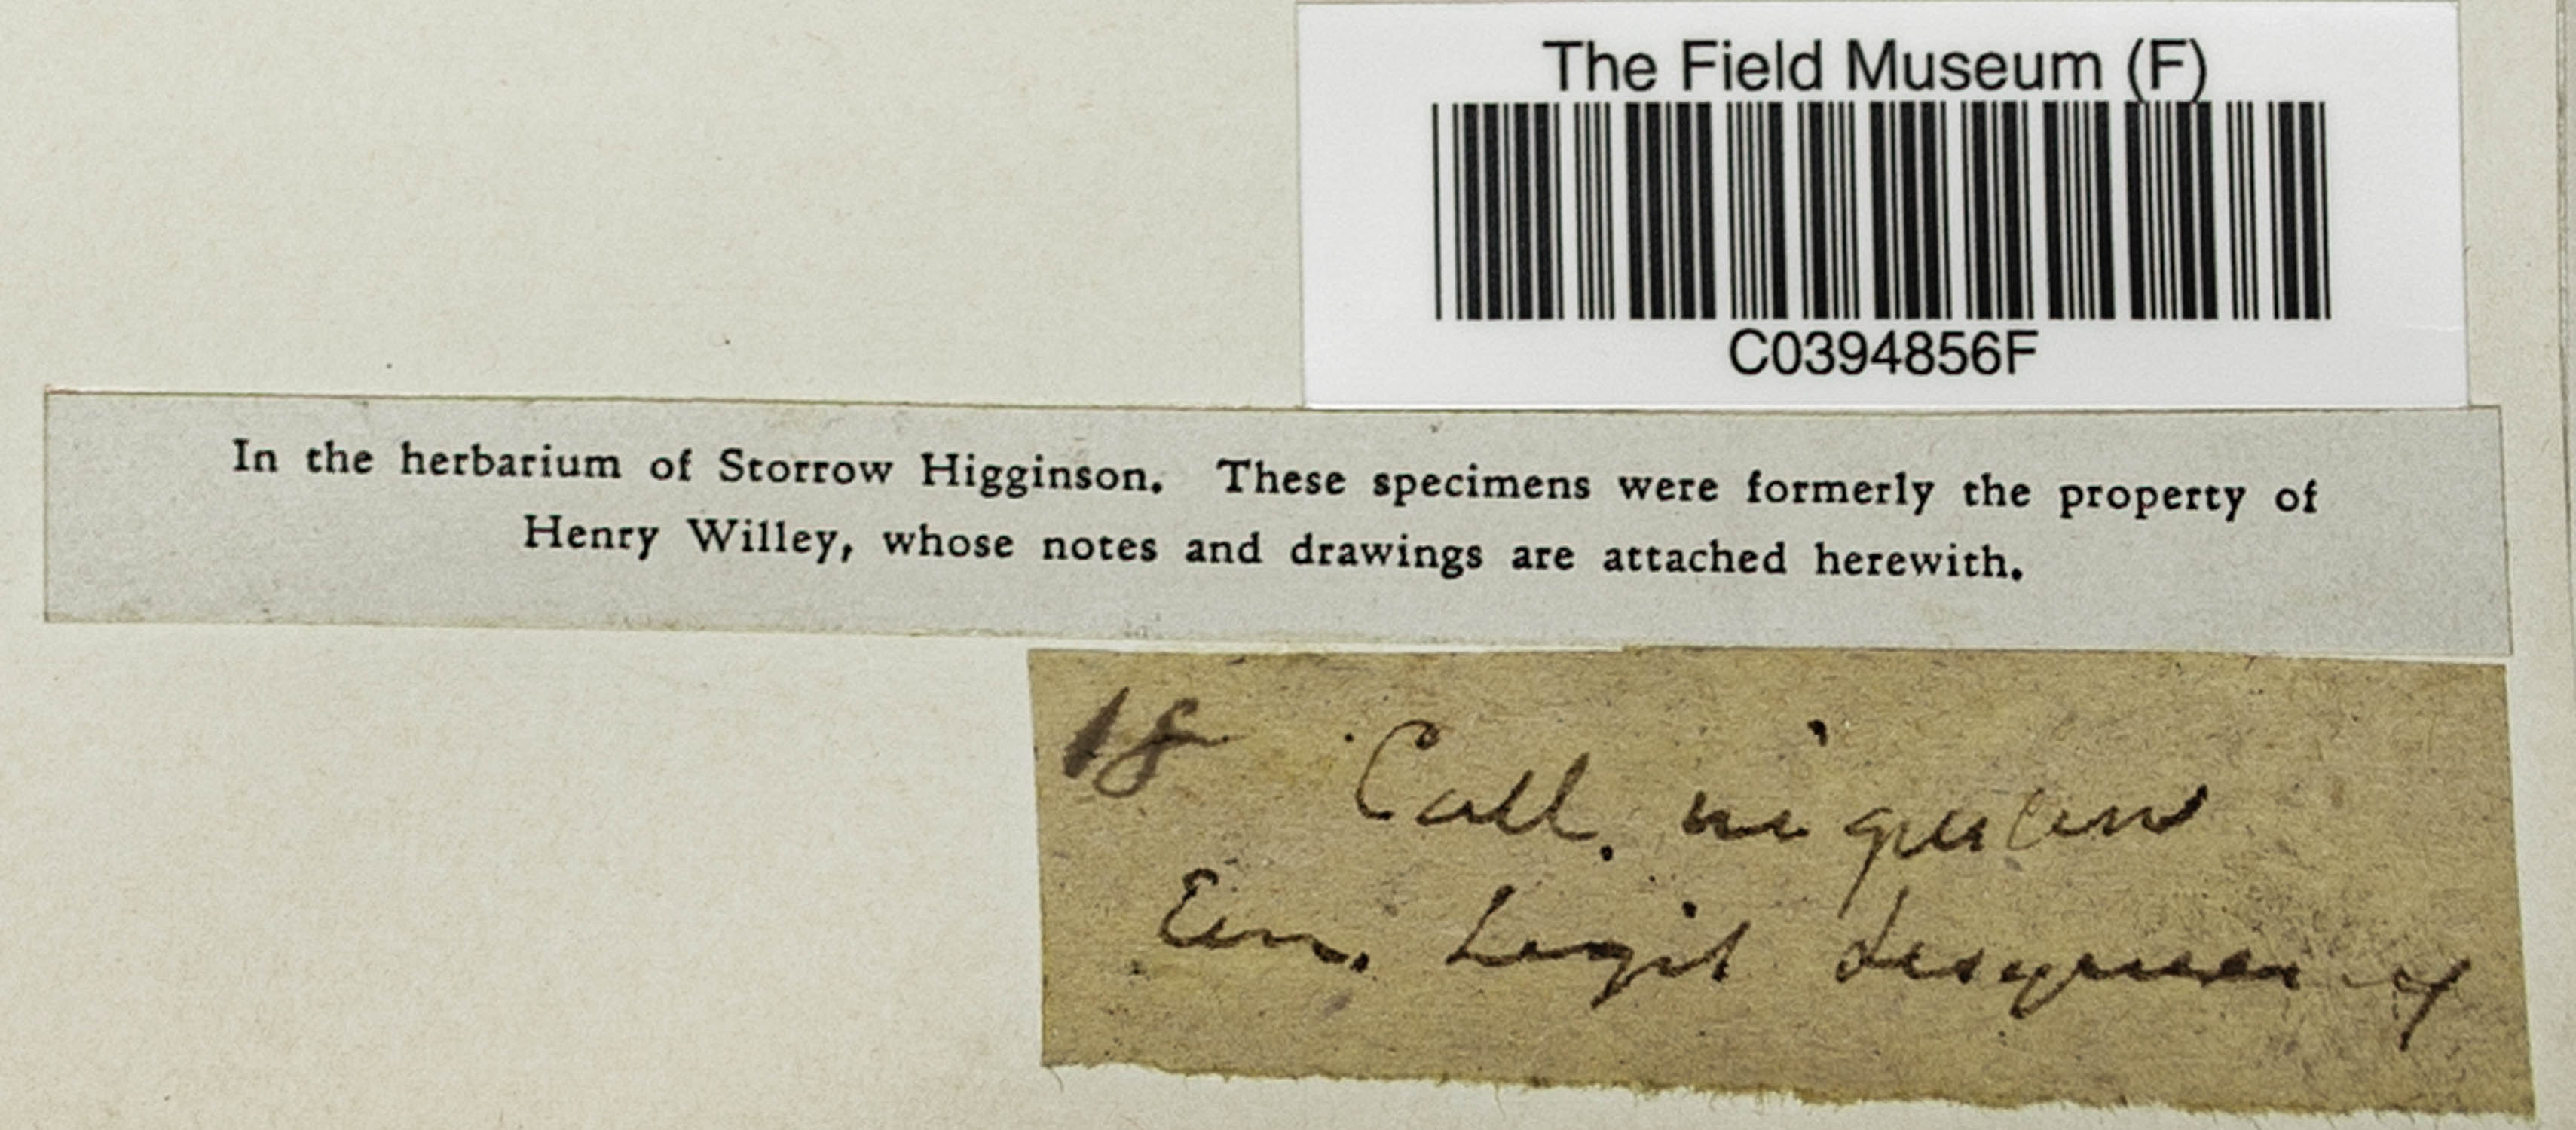 The Field Museum (F)
C0394856F
In the herbarium of Storrow Higginson. These specimens were formerly the property of
Henry Willey, whose notes and drawings are attached herewith.
18 Coll. nigrescens
Legit